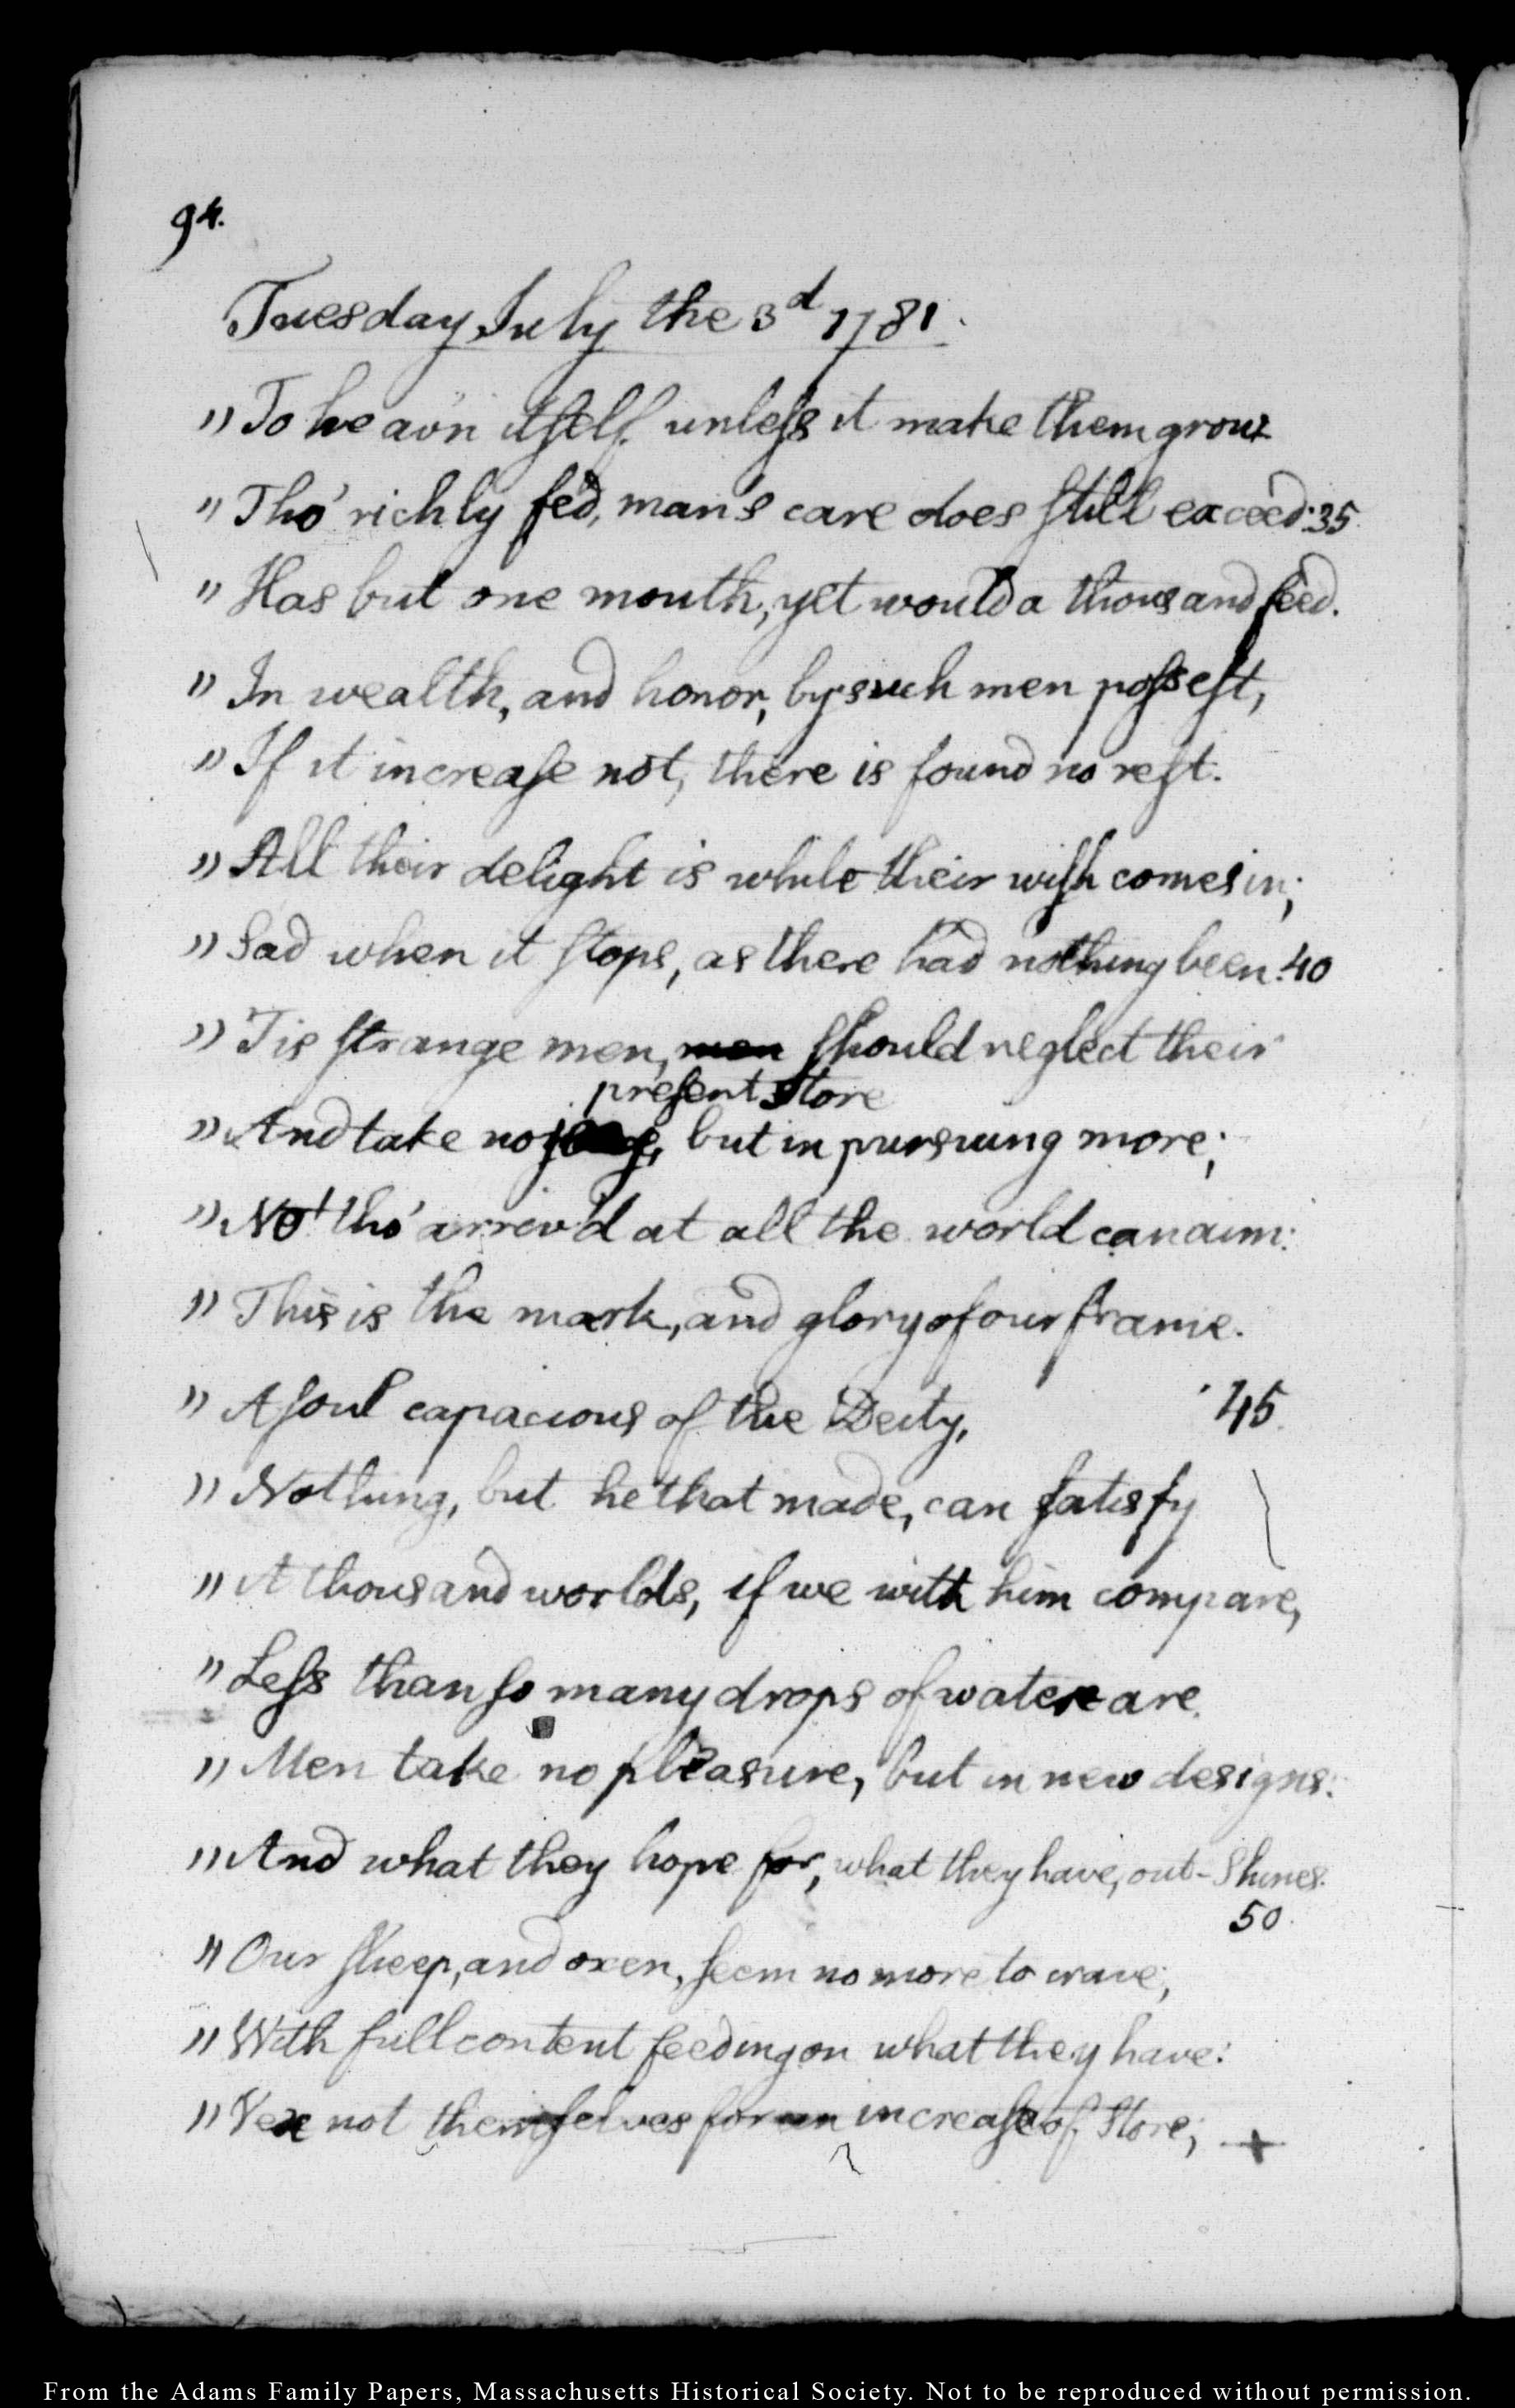 94.
Tuesday July the 3d 1781.
" To heav'n itself unless it make them grow
" Tho' richly fed, man's care does still exceed: 35
" Has but one mouth, yet would a thousand feed.
" In wealth, and honor, by such men possest,
" If it increase not, there is found no rest.
" All their delight is while their wish comes in;
" Sad when it stops, as there had nothing been. 40
" Tis strange men, men should neglect their
present store
" And take no, but in pursuing more;
" Not tho' arriv'd at all the world can aim:
" This is the mark, and glory of our frame.
" A soul capacious of the Deity, 45
" Nothing, but he that made, can satisfy
" A thousand worlds, if we with him compare,
" Less than so many drops of water are.
" Men take no pleasure, but in new designs:
" And what they hope for, what they have, out-shines.
50
" Our sheep, and oxen, seem no more to crave;
" With full content feeding on what they have:
" Vex not themselves for an increase of store; +
From the Adams Family Papers, Massachusetts Historical Society. Not to be reproduced without permission.